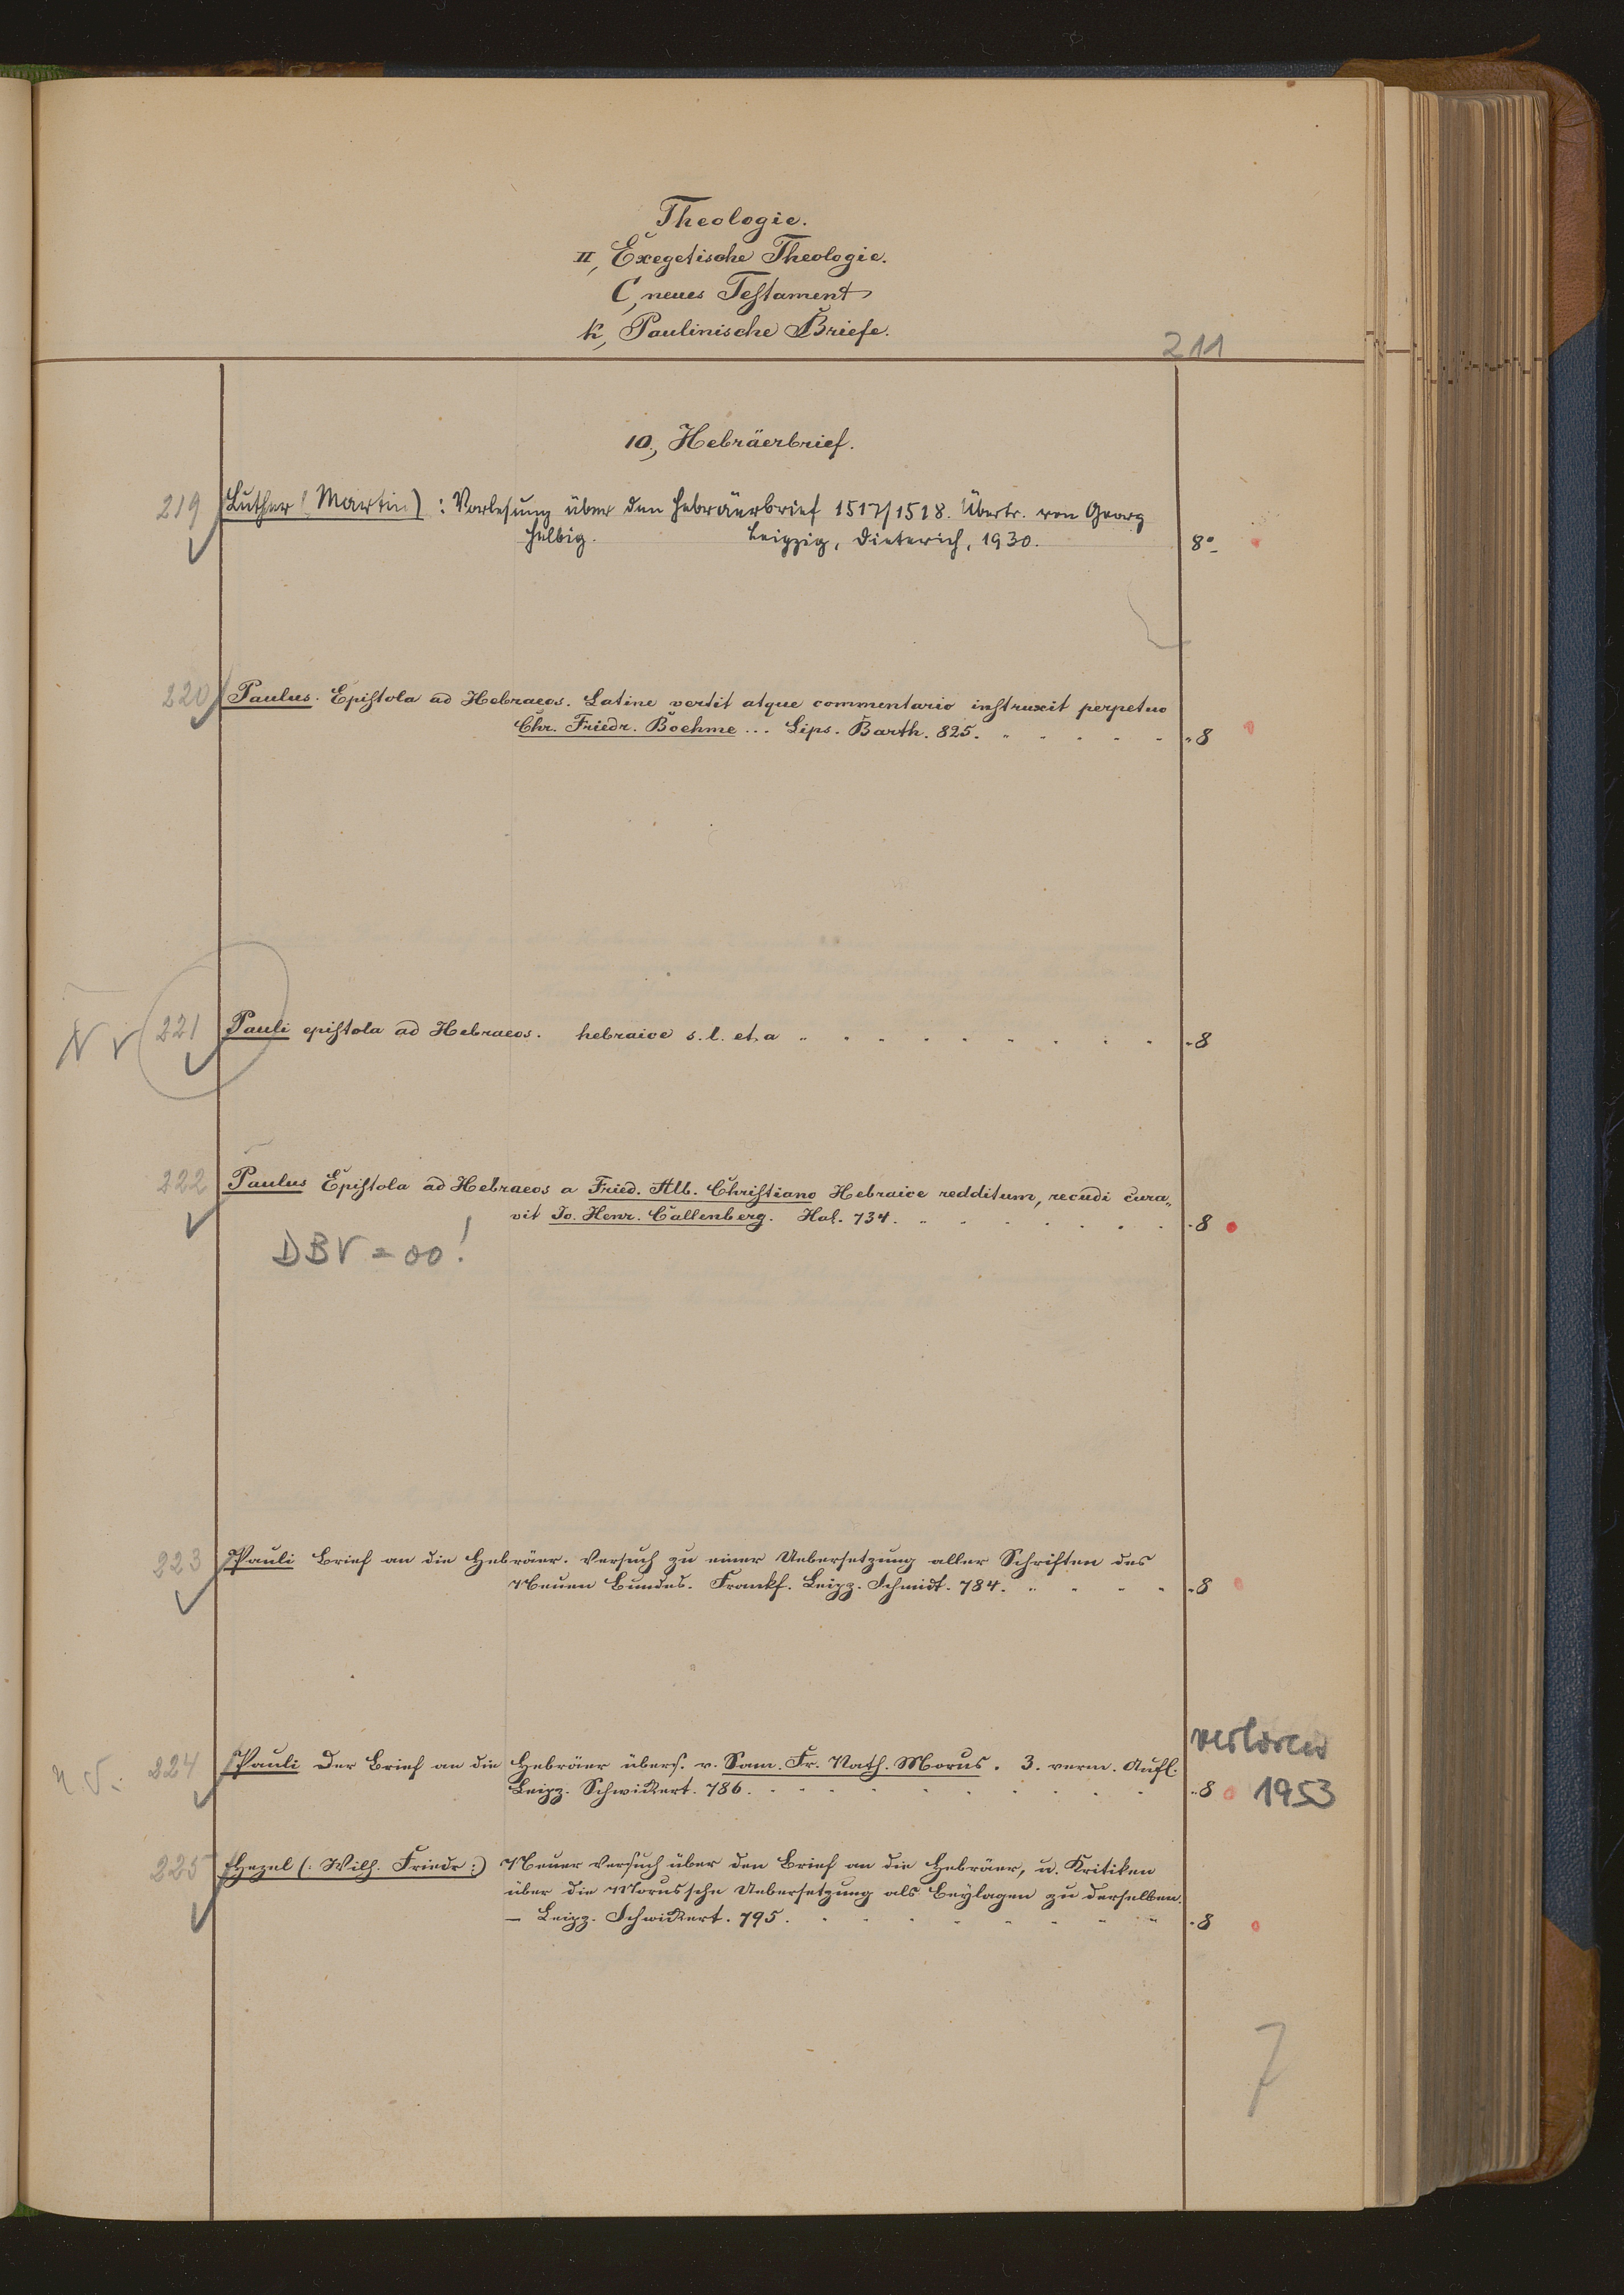 Theologie.
II, Exegetische Theologie.
C, neues Testament
k, Paulinische Briefe.
211
10., Hebräerbrief.
219 Luther (Martin) : Vorlesung über den Hebräerbrief 1517/1518. Übertr. von Georg
Helbig. Leipzig, Dieterich, 1930. 8°
220 Paulus. Epistola ad Hebraeos. Latine vertit atque commentario instruxit perpetuo
Chr. Friedr. Boehme ... Lips. Barth. 825. 8
221 Pauli epistola ad Hebraeos. hebraice s. l. et. a 8
222 Paulus Epistola ad Hebraeos a Fried. Alb. Christiano Hebraice redditum, recudi cura„
vit Jo. Henr. Callenberg. Hal. 734. 8
DBV = 00!
223 Pauli Brief an die Hebräer. Versuch zu einer Uebersetzung aller Schriften des
Neuen Bundes. Frankf. Leipz. Schmidt. 784. 8
verloren
224 Pauli Der Brief an die Hebräer übers. v. Sam. Fr. Nath. Morus. 3. verm. Aufl.
Leipz. Schwickert. 786. 8 1953
225 Hezel (: Wilh. Friedr :) Neuer Versuch über den Brief an die Hebräer, u. Kritiken
über die Morussche Uebersetzung als Beylagen zu derselben.
– Leipz. Schwickert. 795. 8
7